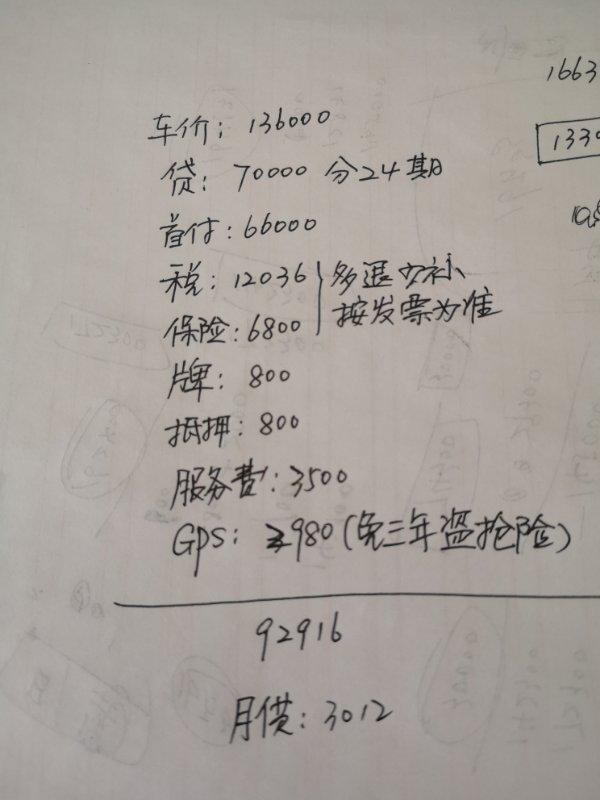 1663
车价: 136000
1330
贷: 70000 分24期
首付: 66000
税: 12036 多退少补
按发票为准
保险: 6800
牌: 800
抵押: 800
服务费: 3500
GPS: 2980 (免三年盗抢险)
92916
月供: 3012